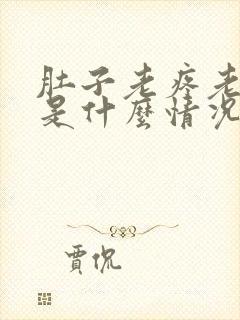 肚子老疼老
是什麼情況
賈侃